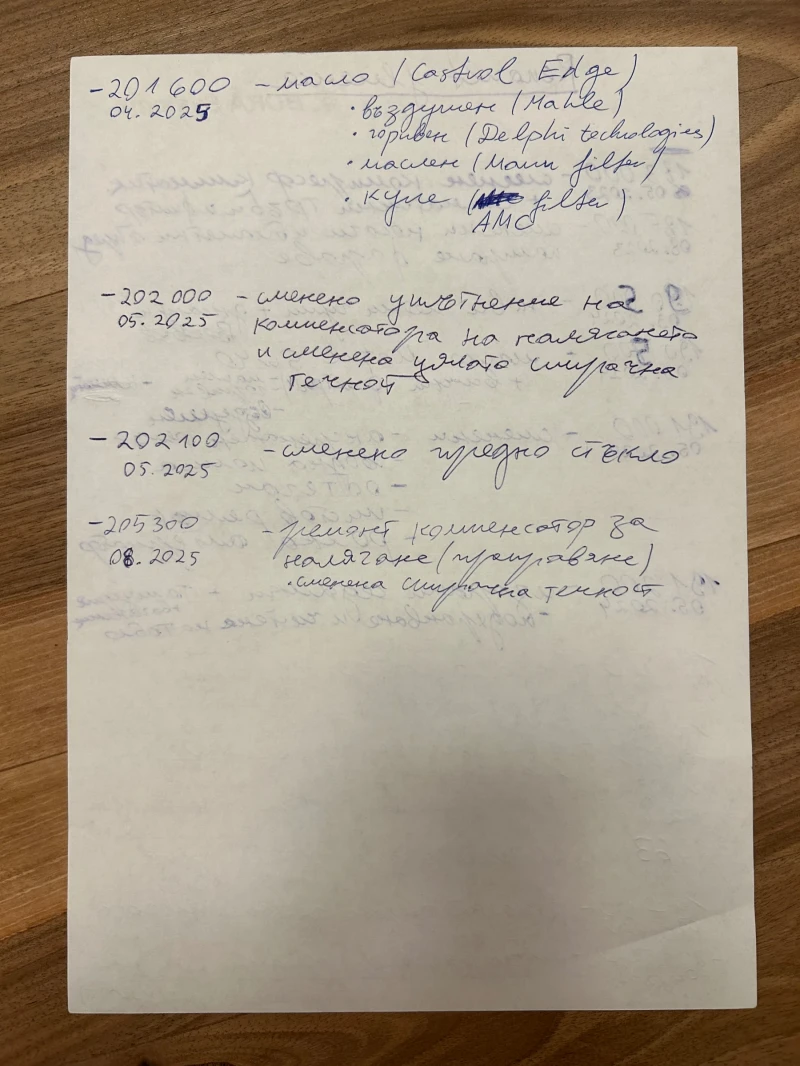 - 201 600 - масло (Castrol Edge)
04.2025
• въздушен (Mahle)
• горивен (Delphi technologies)
• маслен (Mann filter)
• купе (filter)
AMC
- 202 000 - сменено уплътнение на
05.2025 компенсатора на налягането
и сменена цялата спирачна
течност
- 202 100 - сменено предно стъкло
05.2025
- 205 300 - ремонт компенсатор за
08.2025 налягане (
• сменена спирачна течност